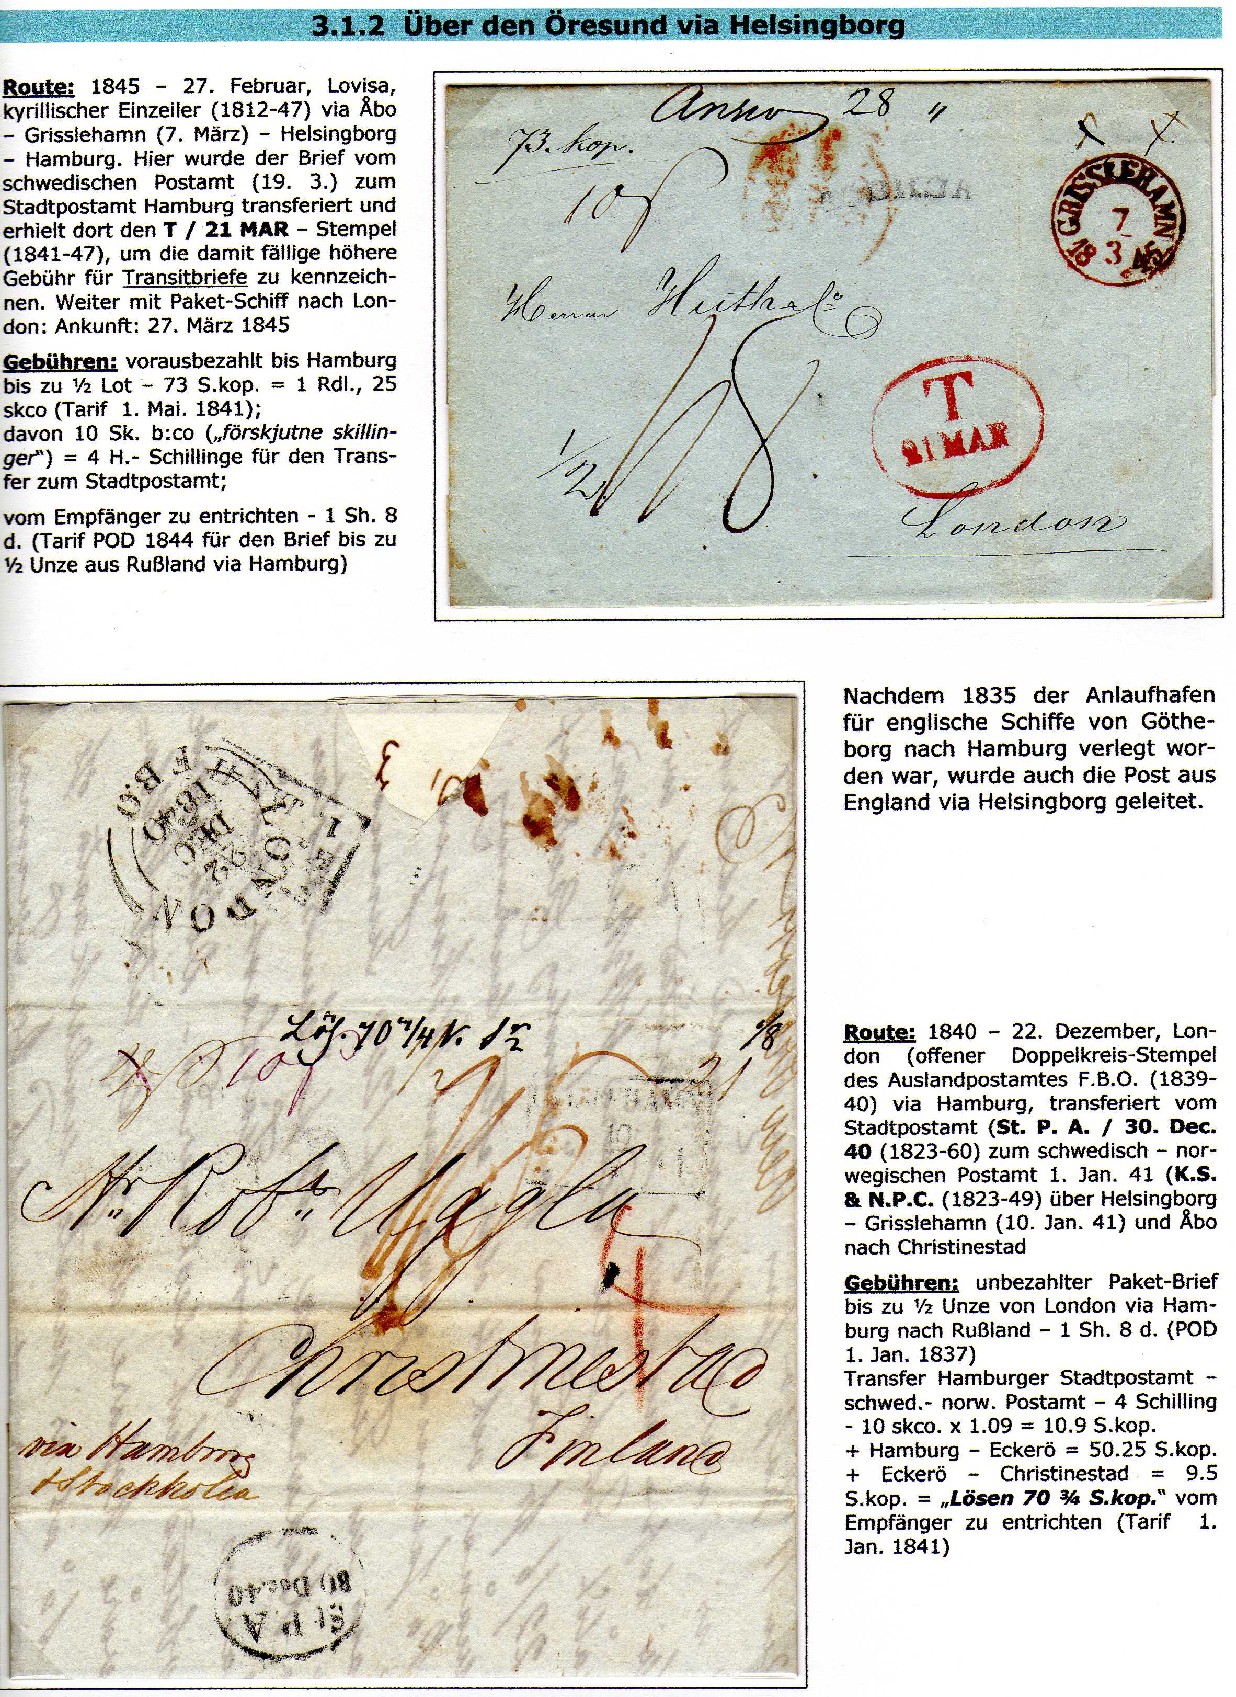 3.1.2 Über den Öresund via Helsingborg
Route: 1845 – 27. Februar, Lovisa,
kyrillischer Einzeiler (1812-47) via Åbo
– Grisslehamn (7. März) – Helsingborg
– Hamburg. Hier wurde der Brief vom
schwedischen Postamt (19. 3.) zum
Stadtpostamt Hamburg transferiert und
erhielt dort den T / 21 MAR – Stempel
(1841-47), um die damit fällige höhere
Gebühr für Transitbriefe zu kennzeich-
nen. Weiter mit Paket-Schiff nach Lon-
don: Ankunft: 27. März 1845
Gebühren: vorausbezahlt bis Hamburg
bis zu ½ Lot – 73 S.kop. = 1 Rdl., 25
skco (Tarif 1. Mai. 1841);
davon 10 Sk. b:co („förskjutne skillin-
ger“) = 4 H.- Schillinge für den Trans-
fer zum Stadtpostamt;
vom Empfänger zu entrichten - 1 Sh. 8
d. (Tarif POD 1844 für den Brief bis zu
½ Unze aus Rußland via Hamburg)
28 „
73. kop.
10
GRISSLEHAMN
7
3
18 45
1/8
1/2
T
21 MAR
London
Nachdem 1835 der Anlaufhafen
für englische Schiffe von Göthe-
borg nach Hamburg verlegt wor-
den war, wurde auch die Post aus
England via Helsingborg geleitet.
LONDON
22
DEC
1840
F.B.O
70 3/4 k.
1/8
10
Robt Uggla
4
Christinestad
Finland
via Hamborg
+ Stockholm
St P.A.
30 Dec. 40
Route: 1840 – 22. Dezember, Lon-
don (offener Doppelkreis-Stempel
des Auslandpostamtes F.B.O. (1839-
40) via Hamburg, transferiert vom
Stadtpostamt (St. P. A. / 30. Dec.
40 (1823-60) zum schwedisch – nor-
wegischen Postamt 1. Jan. 41 (K.S.
& N.P.C. (1823-49) über Helsingborg
– Grisslehamn (10. Jan. 41) und Åbo
nach Christinestad
Gebühren: unbezahlter Paket-Brief
bis zu ½ Unze von London via Ham-
burg nach Rußland – 1 Sh. 8 d. (POD
1. Jan. 1837)
Transfer Hamburger Stadtpostamt –
schwed.- norw. Postamt – 4 Schilling
- 10 skco. x 1.09 = 10.9 S.kop.
+ Hamburg – Eckerö = 50.25 S.kop.
+ Eckerö – Christinestad = 9.5
S.kop. = „Lösen 70 ¾ S.kop.“ vom
Empfänger zu entrichten (Tarif 1.
Jan. 1841)